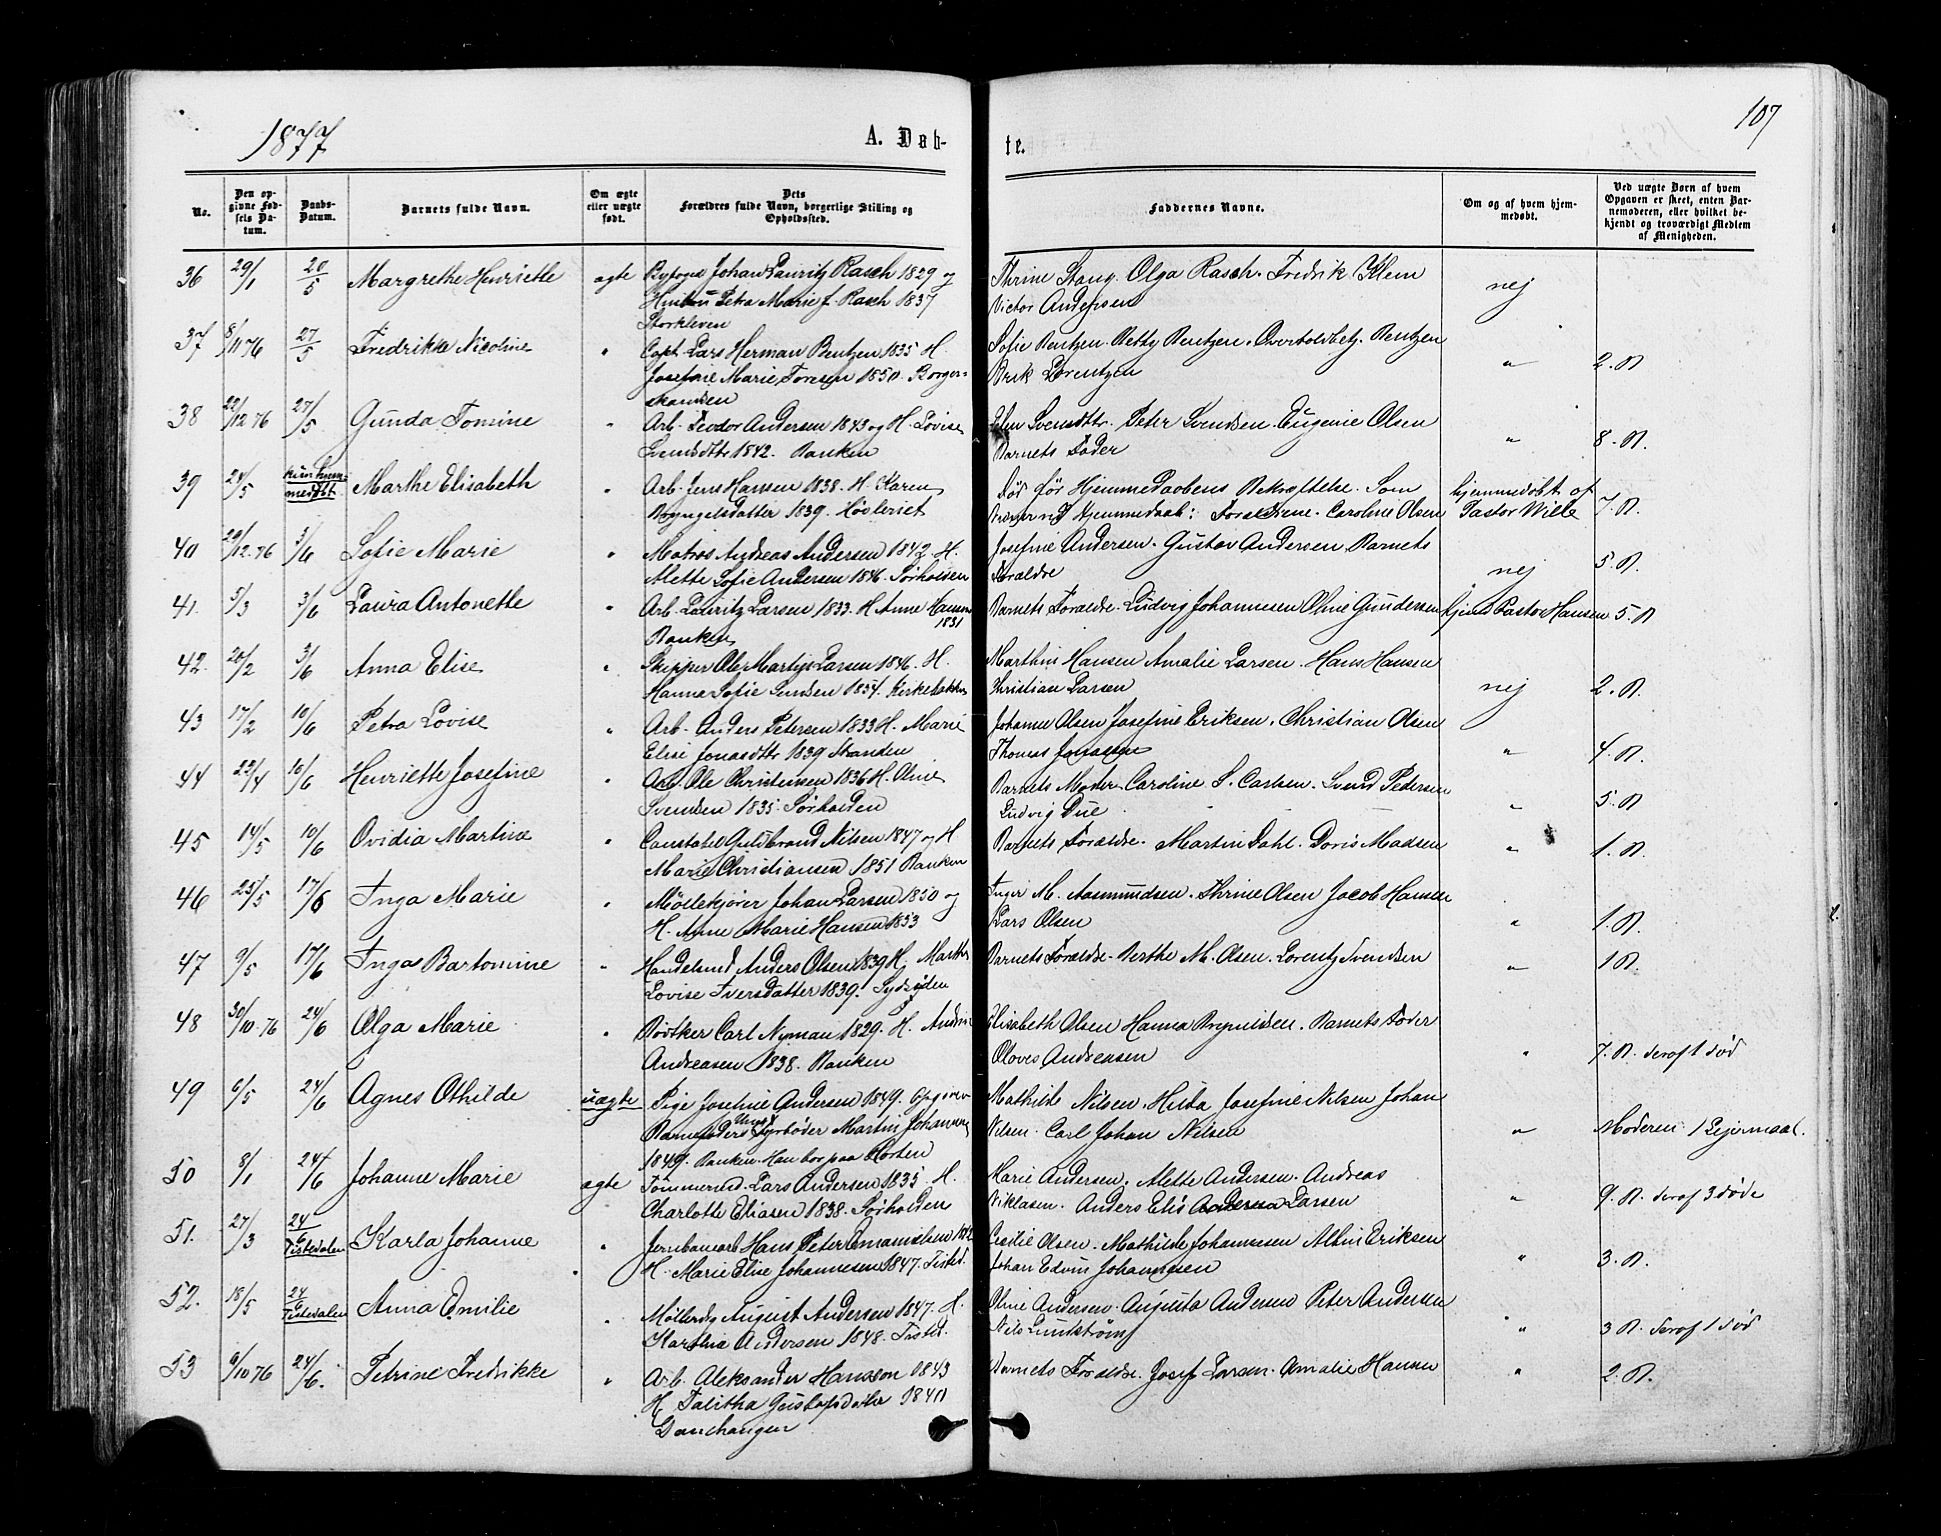 1877
A. Døb-
te.
107
No.
Den op-
givne Fød-
sels Da-
tum.
Daabs-
Datum.
Barnets fulde Navn.
Om ægte
eller uægte
født.
Dets
Forældres fulde Navn, borgerlige Stilling og
Opholdssted.
Faddernes Navne.
Om og af hvem hjem-
medøbt.
Ved uægte Børn af hvem
Opgaven er skeet, enten Bar-
nemoderen, eller hvilket be-
kjendt og troværdigt Medlem
af Menigheden.
36 29/1 20/5 Margrethe Henriette ægte Byfoged Johan Lauritz Rasch 1829 og Thrine Stang. Olga Rasch. Fredrik Klem nej
Hustru Petra Marie f. Rasch 1837 Victor Andersen
Storkleven
37 8/11 76 27/5 Fredrikke Nicoline " Capt. Lars Herman Bentzen 1835 H. Sofie Bentzen. Betty Bentzen. Bentzen " 2. B.
Josefine Marie Toresen 1850. Borger- Lorentzen
skandsen
38 22/12 76 27/5 Gunda Tomine " Arb. Teodor Andersen 1843 og H. Lovise Elen Svendsdtr. Peter Svendsen. Eugenie Olsen " 8. B.
Svendsdtr 1842. Banken Barnets Fader
39 24/5 kun hjem-
medøbt Marthe Elisabeth " Arb. Jens Hansen 1838. H. Karen Død før Hjemmedaabens Bekræftelse. Som hjemmedøbt af 7. B.
Bryngelsdatter 1839. Høvleriet ved Hjemmedaab: Forældrene. Caroline Olsen Pastor Wille
40 29/12 76 3/6 Sofie Marie " Matros Andreas Andersen 1842 H. Josefine Andersen. Gustav Andersen Barnets nej 5. B.
Mette Sofie Andersen 1846. Sørholden Forældre
41. 5/3 3/6 Laura Antonette " Arb. Lauritz Larsen 1833. H. Anne Hansen Barnets Forældre. Ludvig Johannesen Oline Gundersen hjem Pastor Hansen 5. B
1831
Banken
42. 20/2 3/6 Anna Elise " Skipper Ole Martin Larsen 1846. H. Marthin Hansen Amalie Larsen. Hans Hansen nej 2. B.
Hanna Sofie 1854. Kirkebakken Christian Larsen
43 17/2 10/6 Petra Lovise " Arb. Anders Petersen 1833 H. Marie Johanne Olsen Josefine Eriksen. Christian Olsen " 4. B.
Elise Jonasdtr 1839 Stranden Thomas Jonassen
44 23/4 10/6 Henriette Josefine " Arb. Ole Christensen 1836 H. Oline Barnets Moder. Caroline S. Carlsen. Svend Pedersen " 5. B
Svendsen 1835. Sørholden Ludvig Due
45 14/5 10/6 Ovidia Martine " Constabel Guldbrand Nilsen 1847 og H Barnets Forældre. Martin Dahl. Doris Madsen " 1. B.
Marie Christiansen 1851 Banken
46 25/5 17/6 Inga Marie " Møllekjører Johan Larsen 1850 og Inger M. Aasmundsen. Thrine Olsen Jacob Hansen " 1. B.
H. Anne Marie Hansen 1853 Lars Olsen
47 9/5 17/6 Inga Bartomine " Handelsmd Anders Olsen 1839 H. Marthe Barnets Forældre. Berthe M. Olsen. Lorentz Svendsen " 1 B.
Lovise Iversdatter 1839. Sydsiden
48 30/10 76 24/6 Olga Marie " Bødker Carl Nyman 1829. H. Andrine Elisabeth Olsen Hanna Bryn­ildsen. Barnets Fader " 7. B. deraf 1 død
Andreasen 1838. Banken Olaves Andreasen
49 6/5 24/6 Agnes Othilde uægte Pige Josefine Andersen 1849. Opgiven Mathilde Nilsen. Hilda Josefine Nilsen Johan " Moderen 1 Lejermaal.
Barnefader: Ungk. Fyrbøder Martin Johannes Nilsen. Carl Johan Nilsen
1849. Banken. Han bor paa Horten
50 8/1 24/6 Johanne Marie ægte Tømmermd. Lars Andersen 1835. H. Marie Andersen. Mette Andersen. Andreas " 9. B. deraf 3 døde
Charlotte Eliasen 1838. Sørholden Niklasen. Anders Elis Larsen
51. 27/3 24/6
Tistedalen Karla Johanne " Jernbanearb Hans Peter Emanuelsen Cecilie Olsen. Mathilde Johannesen Albin Eriksen " 3. B.
H. Marie Elise Johannesen 1847. Tisted. Johan Edvin Johannesen
52. 18/5 24/6
Tistedalen Anna Emilie " Møllerdr August Andersen 1847. H. Oline Andersen. Augusta Andersen Peter Andersen " 3 B. deraf 1 død
Karthia Andersen 1848. Tisted. Nils Lundstrøm
53 9/10 76 24/6. Petrine Fredrikke " Arb. Aleksander Hansson 1843 Barnets Forældre. Josef Larsen. Amalie Hansen " 2. B.
H. Talitha Gustafsdatter 1840
Damhaugen